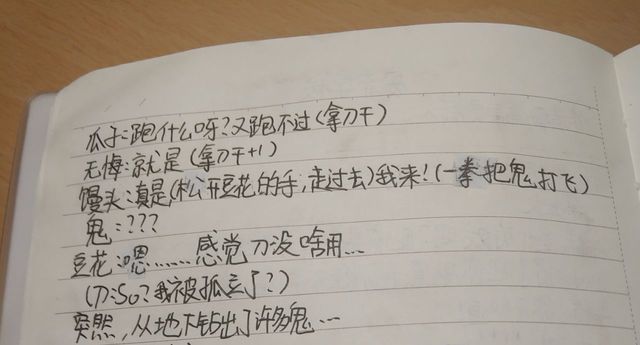 瓜子:跑什么呀?又跑不过(拿刀干)
无悔:就是(拿刀干+1)
馒头:真是(松开豆花的手,走过去)我来!(一拳把鬼打飞)
鬼:???
豆花:嗯......感觉刀没啥用...
(刀:So?我被孤立了?)
突然,从地下钻出了许多鬼...